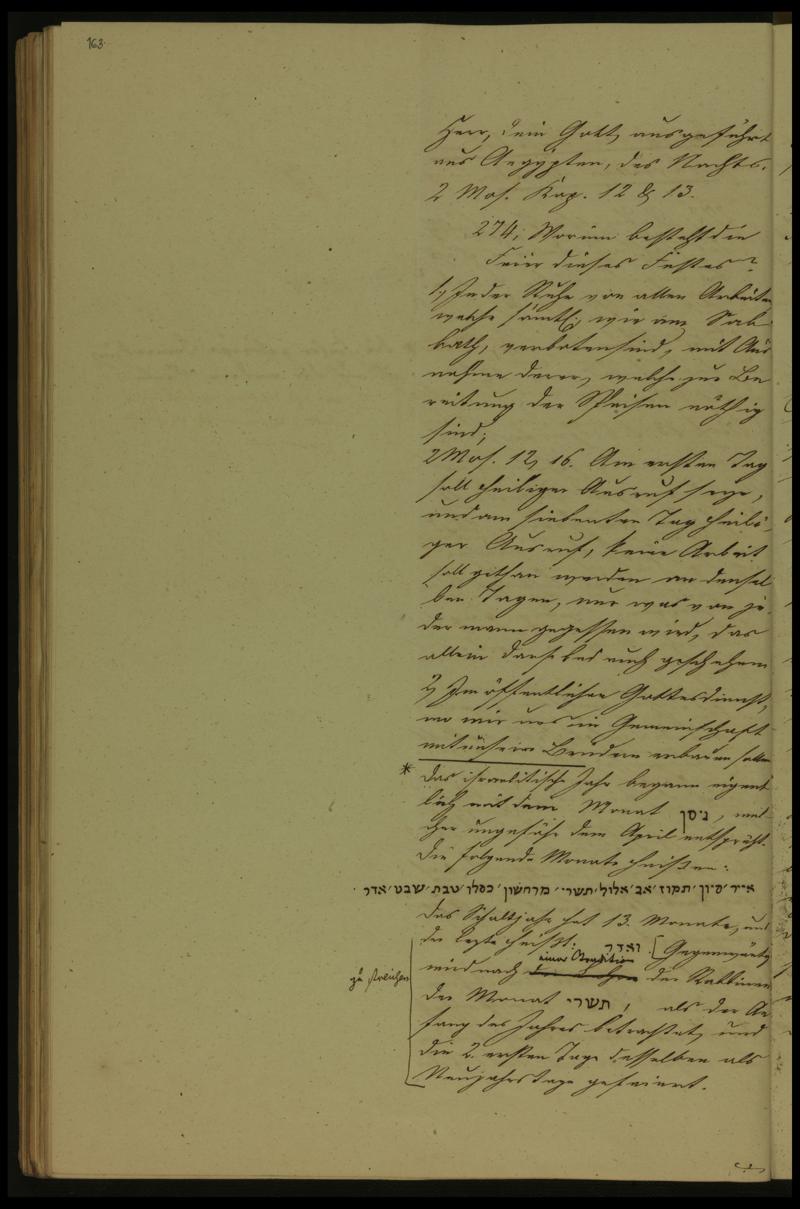 163.
Herr, dein Gott, ausgeführt
aus Aegÿpten, des Nachts.
2 Mos. Kap. 12 & 13.
274, Worinn besteht die
Feier dieses Festes?
1, In der Ruhe von allen Arbeiten
welche sämtl., wie am Sab-
bath, verboten sind, mit Aus
nahme derer, welche zur Be
reitung der Speisen nöthig
sind;
2 Mos. 12, 16. Am ersten Tag
soll heiliger Ausruf seyn,
und am siebenten Tag heili-
ger Ausruf, keine Arbeit
soll gethan werden an densel
ben Tagen, nur was von je
dermann gegessen wird, das
allein darf bei euch geschehen
2, Im öffentlichen Gottesdienst,
wo wir uns in Gemeinschaft
mit unsern Brüdern erbauen sollen
* Das israelitische Jahr begann eigent
lich mit dem Monat ניסן, wel
cher ungefähr dem April entspricht.
Die folgende Monate heißen:
אייר׳סיון׳תמוז׳אב׳אלול׳תשרי׳ מרחשון׳ כסלו׳טבת׳שבט׳אדר
Das Schaltjahr hat 13. Monate, und
der lezte heißt: ואדר. [Gegenwärtig
einer Tradition
wird nach der Rabbinen
zu streichen
der Monat תשרי, als der An
fang des Jahres betrachtet, und
die 2. ersten Tage desselben als
Neujahrstage gefeiert.